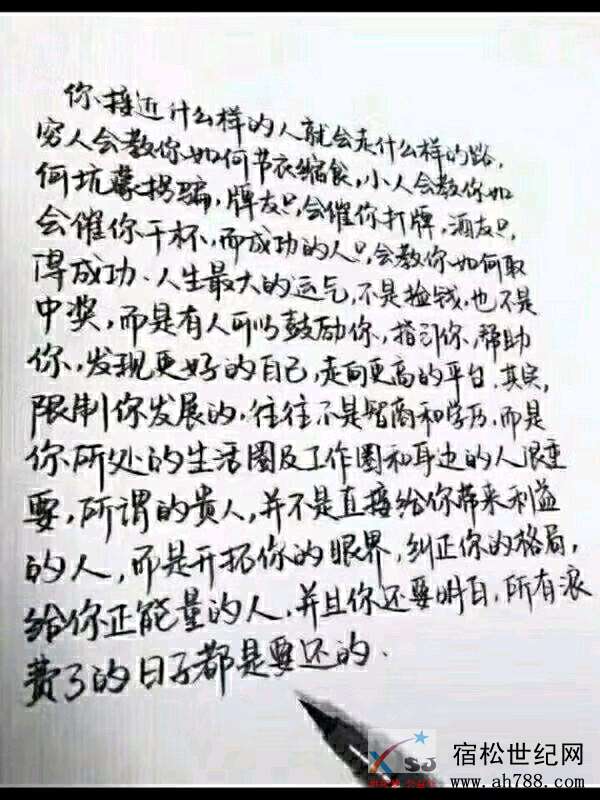 你接近什么样的人就会走什么样的路,
穷人会教你如何节衣缩食,小人会教你如
何坑蒙拐骗,牌友只会催你打牌,酒友只
会催你干杯,而成功的人只会教你如何取
得成功、人生最大的运气,不是捡钱,也不是
中奖,而是有人可以鼓励你,指引你,帮助
你,发现更好的自己,走向更高的平台.其实,
限制你发展的,往往不是智商和学历,而是
你所处的生活圈及工作圈和身边的人很重
要,所谓的贵人,并不是直接给你带来利益
的人,而是开拓你的眼界,纠正你的格局,
给你正能量的人,并且你还要明白,所有浪
费了的日子都是要还的.
XSJ
宿松世纪网
www.ah788.com